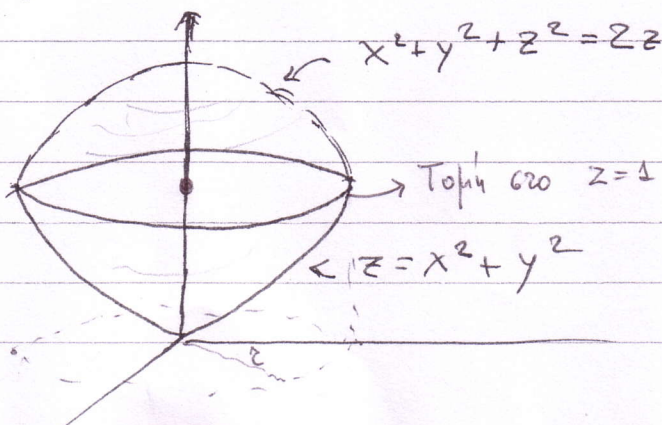 x² + y² + z² = 2z
Τομή στο z = 1
z = x² + y²
r